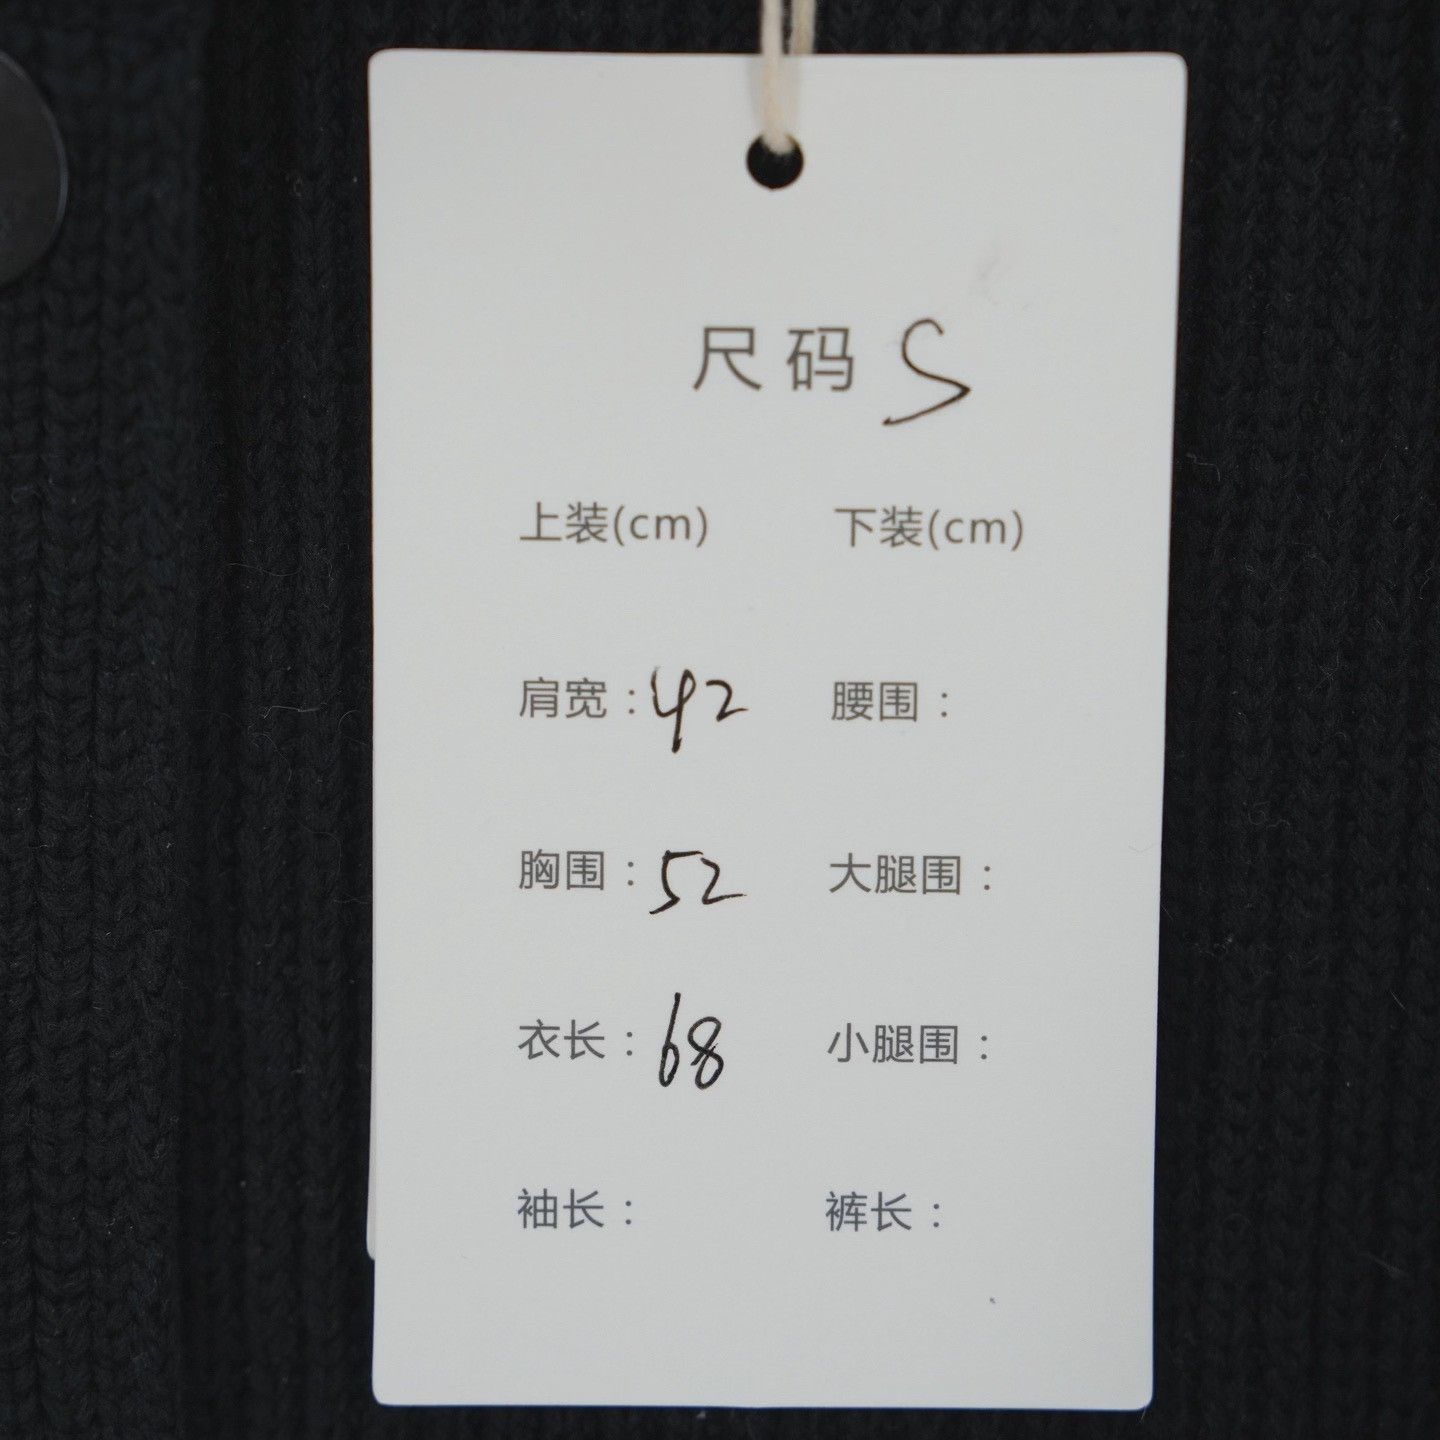 尺码 S
上装(cm) 下装(cm)
肩宽：42 腰围：
胸围：52 大腿围：
衣长：68 小腿围：
袖长： 裤长：